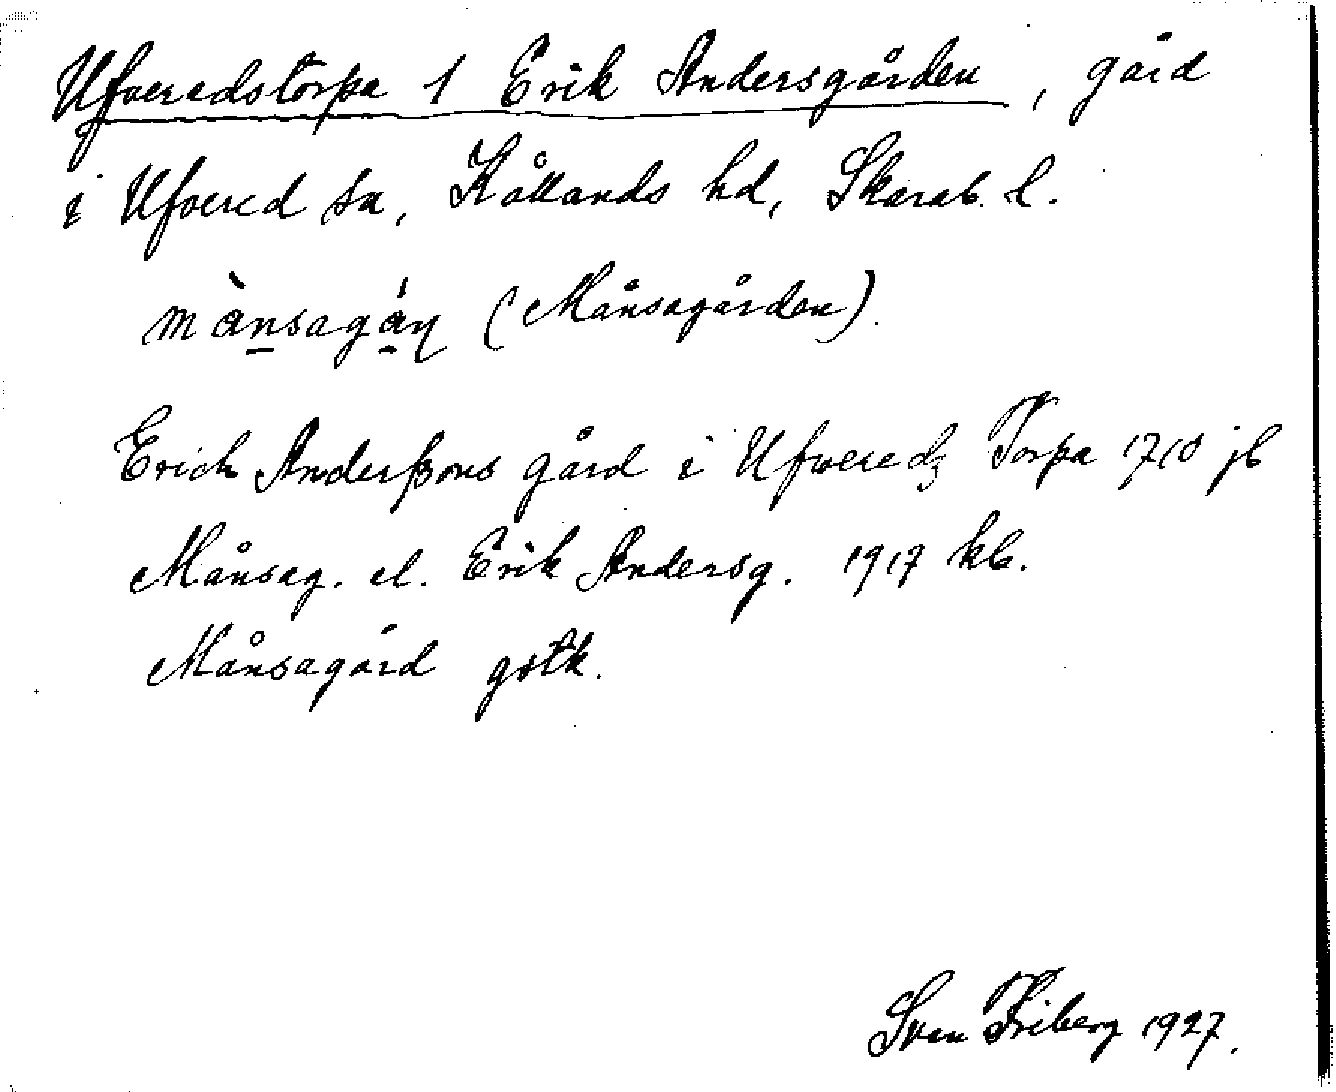 Ufveredstorpa 1 Erik Andersgården, gård
i Ufvered sn, Kållands hd, Skarab. l.
mànsagáṇ (Månsagården).
Erich Anderßons gård i Ufweredz Torpa 1710 jb
Månsag. el. Erik Andersg. 1917 kb.
Månsagård gstk.
Sven Friberg 1927.